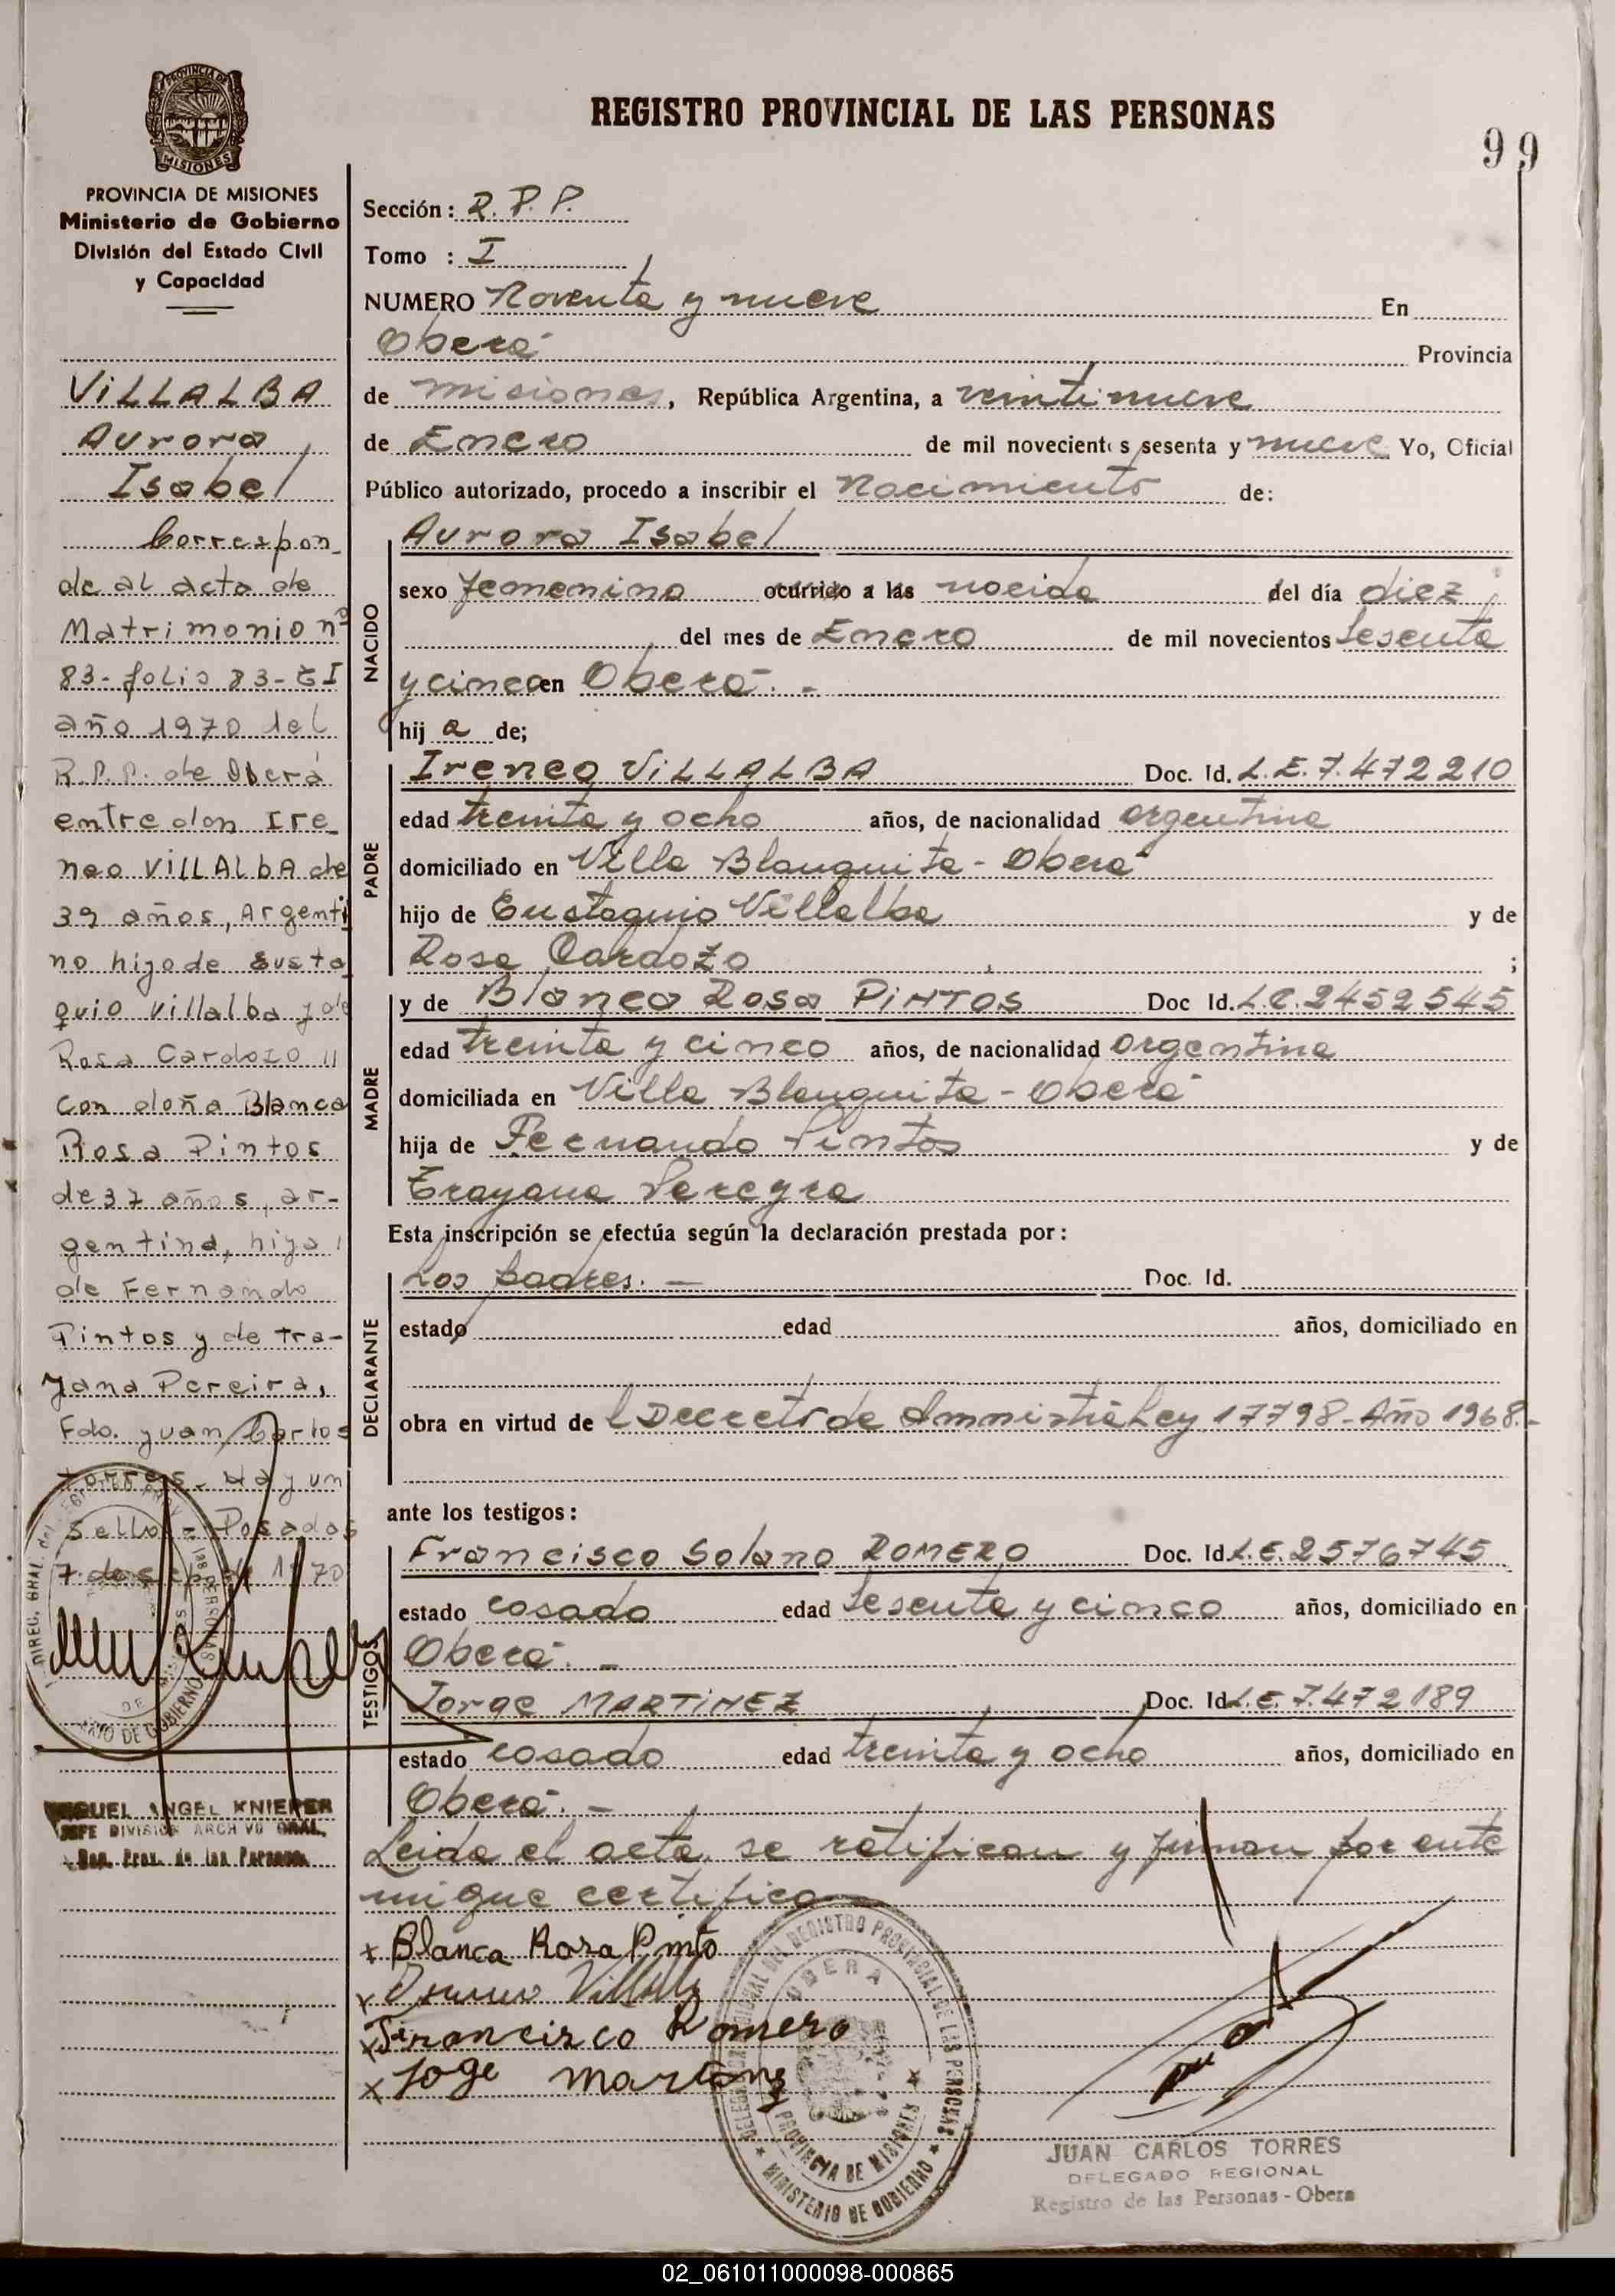 REGISTRO PROVINCIAL DE LAS PERSONAS
99
PROVINCIA DE MISIONES
PROVINCIA DE MISIONES
Ministerio de Gobierno
División del Estado Civil
y Capacidad
VILLALBA
Aurora
Isabel
Correspon-
de al acta de
Matrimonio nº
83-folio 83-TI
año 1970 del
R.P.P. de Oberá
entre don Ire-
neo VILLALbA de
39 años, Argenti
no hijo de Eusta
quio Villalba y de
Rosa Cardozo
con doña Blanca
Rosa Pintos
de 37 años, ar-
gentina, hija
de Fernando
Pintos y de Tra-
yana Pereira,
Fdo. Juan Carlos
Torres. Hay un
sello - Posadas
7 de sep de 1970
MIGUEL ANGEL KNIEPER
JEFE DIVISION ARCHIVO GRAL.
Reg. Prov. de las Personas
Sección: R. P. P.
Tomo : I
NUMERO Noventa y nueve En
Oberá Provincia
de Misiones, República Argentina, a veintinueve
de Enero de mil novecientos sesenta y nueve Yo, Oficial
Público autorizado, procedo a inscribir el Nacimiento de:
NACIDO
Aurora Isabel
sexo femenino ocurrido a las nacida del día diez
del mes de Enero de mil novecientos Sesenta
y cinco en Oberá. -
hij a de;
PADRE
Ireneo VILLALBA Doc. Id. L.E. 7.472210
edad treinta y ocho años, de nacionalidad argentina
domiciliado en Villa Blanquita - Oberá
hijo de Eustaquio Villalba y de
Rosa Cardozo ;
MADRE
y de Blanca Rosa PINTOS Doc Id. L.C. 2452545
edad treinta y cinco años, de nacionalidad argentina
domiciliada en Villa Blanquita - Oberá
hija de Fernando Pintos y de
Trayana Pereyra
Esta inscripción se efectúa según la declaración prestada por:
DECLARANTE
Los padres. — Doc. Id.
estado edad años, domiciliado en
obra en virtud de l Decreto de Amnistia Ley 17798-Año 1968.-
ante los testigos:
TESTIGOS
Francisco Solano ROMERO Doc. Id L.E. 2576745
estado casado edad Sesenta y cinco años, domiciliado en
Oberá. -
Jorge MARTINEZ Doc. Id L.E. 7.472189
estado casado edad treinta y ocho años, domiciliado en
Oberá. -
Leida el acta, se ratifican y firman por ante
mi que certifico
x Blanca Rosa Pinto
x Ireneo Villalba
x Francisco Romero
x Joge Martinez
DELEGACION REGIONAL DEL REGISTRO PROVINCIAL DE LAS PERSONAS
OBERA
PROVINCIA DE MISIONES
MINISTERIO DE GOBIERNO
JUAN CARLOS TORRES
DELEGADO REGIONAL
Registro de las Personas - Obera
02_061011000098-000865